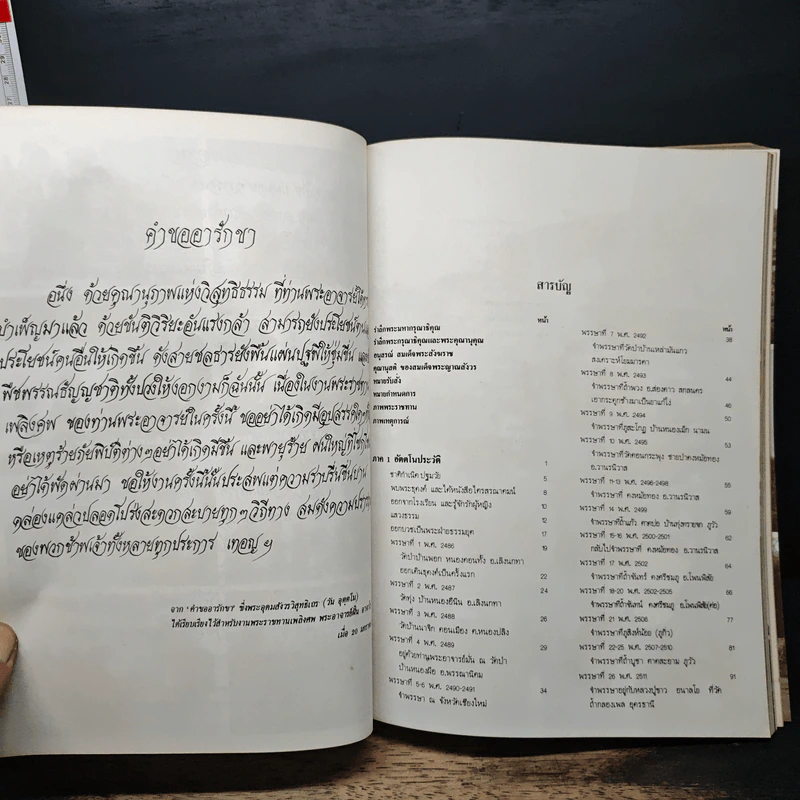 คำขออารักขา
อนึ่ง ด้วยคุณานุภาพแห่งวิสุทธิธรรม ที่ท่านพระอาจารย์ได้
บำเพ็ญมาแล้ว ด้วยขันติวิริยะอันแรงกล้า สามารถยังประโยชน์ตน
ประโยชน์คนอื่นให้เกิดขึ้น ดังสายชลธารยังพื้นแผ่นปฐพีให้ชุ่มชื่น
พืชพรรณธัญญชาติทั้งปวงให้งอกงามก็ฉันนั้น เนื่องในงานพระราชทาน
เพลิงศพ ของท่านพระอาจารย์ในครั้งนี้ ขออย่าได้เกิดมีอุปสรรคใดๆ
หรือเหตุร้ายภัยพิบัติต่างๆอย่าได้เกิดมีขึ้น และพายุร้าย ฝนใหญ่ก็
อย่าได้พัดผ่านมา ขอให้งานครั้งนี้นั้นประสพแต่ความราบรื่นชื่นบาน
คล่องแคล่วปลอดโปร่งสะดวกสะบายทุกๆวิถีทาง สมดังความปรารถนา
ของพวกข้าพเจ้าทั้งหลายทุกประการ เทอญฯ
จาก "คำขออารักขา" ซึ่งพระอุดมสังวรวิสุทธิเถร (วัน อุตฺตโม)
ได้เรียบเรียงไว้สำหรับงานพระราชทานเพลิงศพ พระอาจารย์ฝั้น
เมื่อ 20
สารบัญ
หน้า
รำลึกพระมหากรุณาธิคุณ
รำลึกพระกรุณาธิคุณและพระคุณานุคุณ
อนุสรณ์ สมเด็จพระสังฆราช
คุณานุสติ ของสมเด็จพระญาณสังวร
คุณวรรับสั่ง
หมายกำหนดการ
ภาพพระราชทาน
ภาพเหตุการณ์
ภาค 1 อัตตโนประวัติ 1
ชาติกำเนิด ปฐมวัย 5
พบพระธุดงค์ และได้หนังสือไตรสรณาคมน์ 8
ออกจากโรงเรียน และรู้จักรักผู้หญิง 10
แสวงธรรม 12
ออกบวชเป็นพระฝ่ายธรรมยุต 17
พรรษาที่ 1 พ.ศ. 2486 19
วัดป่าบ้านพอก หนองคอนทั้ง อ.เลิงนกทา
ออกเดินธุดงค์เป็นครั้งแรก
พรรษาที่ 2 พ.ศ. 2487 22
วัดทุ่ง บ้านหนองยีนิน อ.เลิงนกทา
พรรษาที่ 3 พ.ศ. 2488 26
วัดบ้านนาจิก ดอนเมือง ต.หนองปลิง
พรรษาที่ 4 พ.ศ. 2489 29
อยู่ด้วยท่านพระอาจารย์มั่น ณ วัดป่า
บ้านหนองผือ อ.พรรณานิคม
พรรษาที่ 5-6 พ.ศ. 2490-2491 34
จำพรรษา ณ จังหวัดเชียงใหม่
หน้า
พรรษาที่ 7 พ.ศ. 2492 38
จำพรรษาที่วัดป่าบ้านเหล่ามันแกว
สงเคราะห์โยมมารดา
พรรษาที่ 8 พ.ศ. 2493 44
จำพรรษาที่ถ้ำพวง อ.ส่องดาว สกลนคร
เอากระดูกช้างมาเป็นยาแก้ไข้ 46
พรรษาที่ 9 พ.ศ. 2494 50
จำพรรษาที่ภูสะโกฏ บ้านหนองเม็ก นามน
พรรษาที่ 10 พ.ศ. 2495 53
จำพรรษาที่วัดดอนกระพุง ชายป่าดงหม้อทอง
อ.วานรนิวาส
พรรษาที่ 11-13 พ.ศ. 2496-2498 55
จำพรรษาที่ ดงหม้อทอง อ.วานรนิวาส
พรรษาที่ 14 พ.ศ. 2499 59
พรรษาที่ 15-16 พ.ศ. 2500-2501 62
กลับไปจำพรรษาที่ ดงหม้อทอง อ.วานรนิวาส
พรรษาที่ 17 พ.ศ. 2502 64
จำพรรษาที่ถ้ำจันทร์ ดงศรีชมภู อ.โพนพิสัย
พรรษาที่ 18-20 พ.ศ. 2502-2505 66
จำพรรษาที่ถ้ำจันทน์ ดงศรีชมภู อ.โพนพิสัย(ต่อ)
พรรษาที่ 21 พ.ศ. 2506 77
จำพรรษาที่ภูสิงห์น้อย (ภูกิ่ว)
พรรษาที่ 22-25 พ.ศ. 2507-2510 81
จำพรรษาที่ถ้ำบูชา ภูวัว
พรรษาที่ 26 พ.ศ. 2511 91
จำพรรษาอยู่กับหลวงปู่ขาว อนาลโย ที่วัด
ถ้ำกลองเพล อุดรธานี